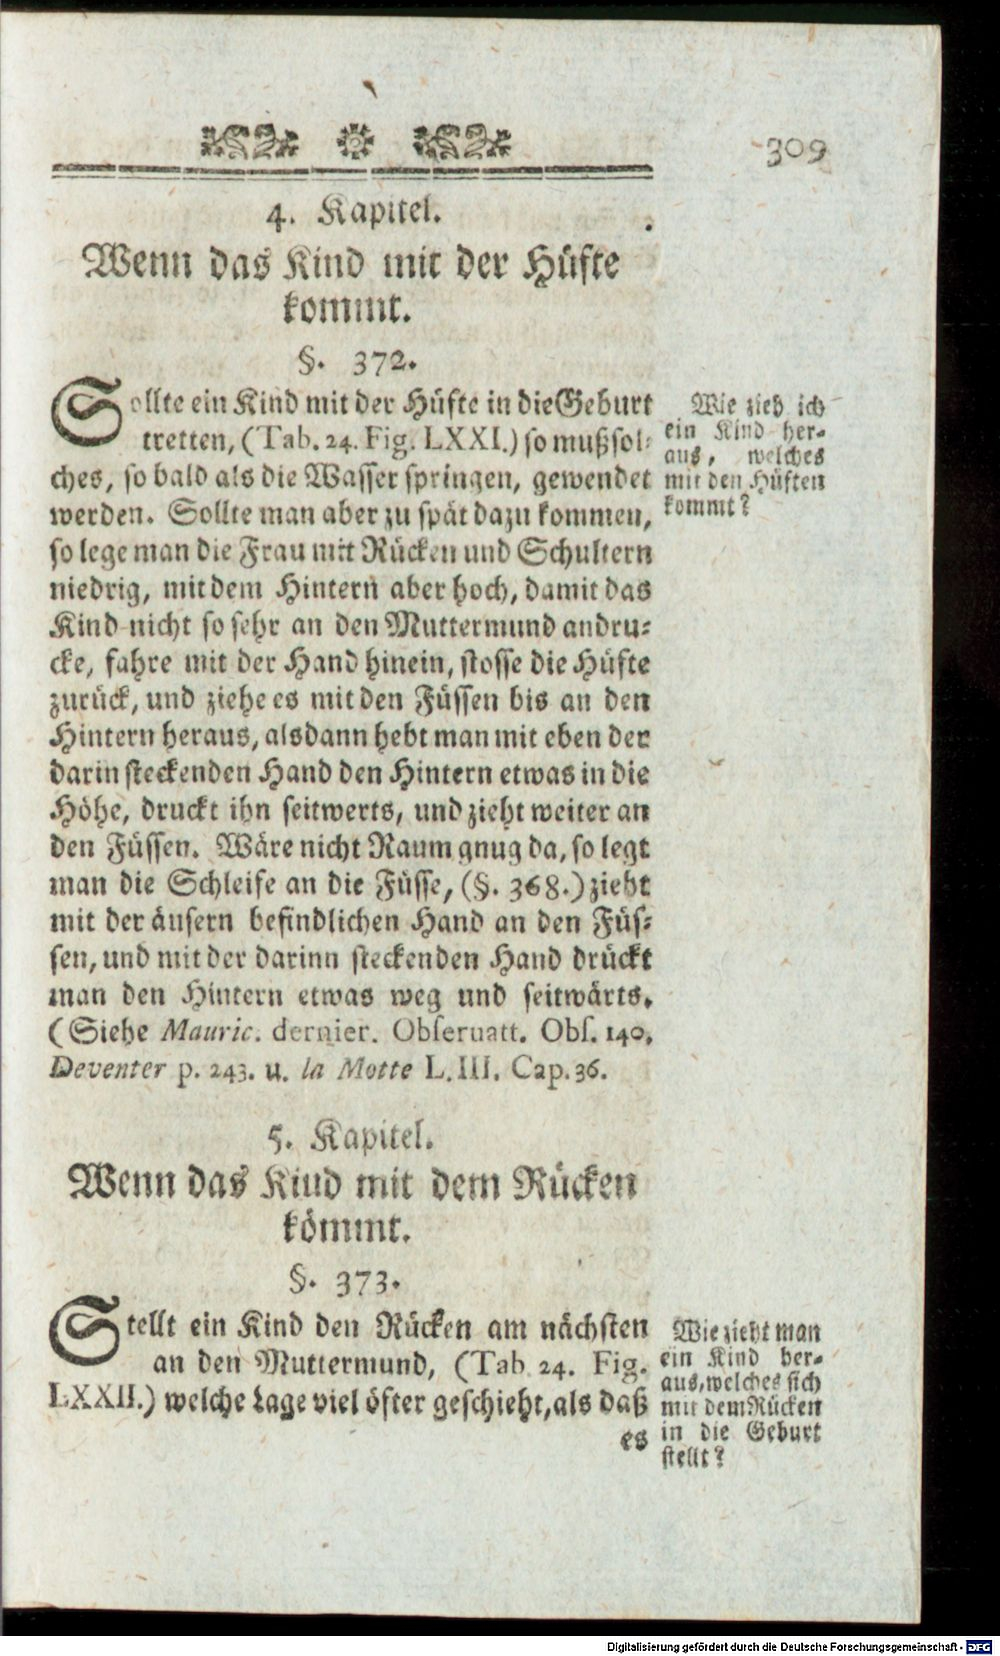 309
4. Kapitel.
Wenn das Kind mit der Hüfte
kommt.
§. 372.
Sollte ein Kind mit der Hüfte in die Geburt
tretten, (Tab. 24. Fig. LXXI.) so muß sol-
ches, so bald als die Wasser springen, gewendet
werden. Sollte man aber zu spät dazu kommen,
so lege man die Frau mit Rücken und Schultern
niedrig, mit dem Hintern aber hoch, damit das
Kind nicht so sehr an den Muttermund andru-
cke, fahre mit der Hand hinein, stosse die Hüfte
zurück, und ziehe es mit den Füssen bis an den
Hintern heraus, alsdann hebt man mit eben der
darin steckenden Hand den Hintern etwas in die
Höhe, druckt ihn seitwerts, und zieht weiter an
den Füssen. Wäre nicht Raum gnug da, so legt
man die Schleife an die Füsse, (§. 368.) zieht
mit der äusern befindlichen Hand an den Füs-
sen, und mit der darinn steckenden Hand drückt
man den Hintern etwas weg und seitwärts.
(Siehe Mauric. dernier. Obseruatt. Obs. 140.
Deventer p. 243. u. la Motte L. III. Cap. 36.
Wie zieh ich
ein Kind her-
aus, welches
mit den Hüften
kommt?
5. Kapitel.
Wenn das Kind mit dem Rücken
kömmt.
§. 373.
Stellt ein Kind den Rücken am nächsten
an den Muttermund, (Tab 24. Fig.
LXXII.) welche Lage viel öfter geschieht, als daß
es
Wie zieht man
ein Kind her-
aus, welches sich
mit dem Rücken
in die Geburt
stellt?
Digitalisierung gefördert durch die Deutsche Forschungsgemeinschaft - DFG